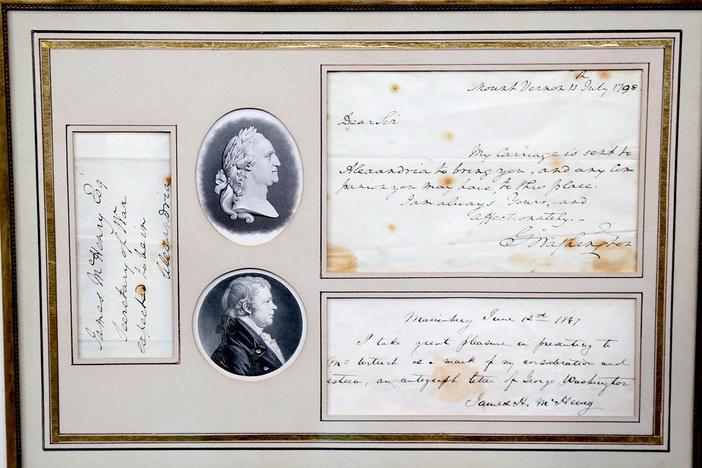 James McHenry Esq
Secretary of War
expected to be in
Alexandria
Mount Vernon 11th July 1798.
Dear Sir
My Carriage is sent to
Alexandria to bring you, and any Com
panion you may have, to this place.
I am always Yours, and
affectionately.-
Go Washington
June 12th 1867
I take great pleasure in presenting to
Mc as a mark of my consideration and
esteem, an autograph letter of George Washington
James H. McHenry